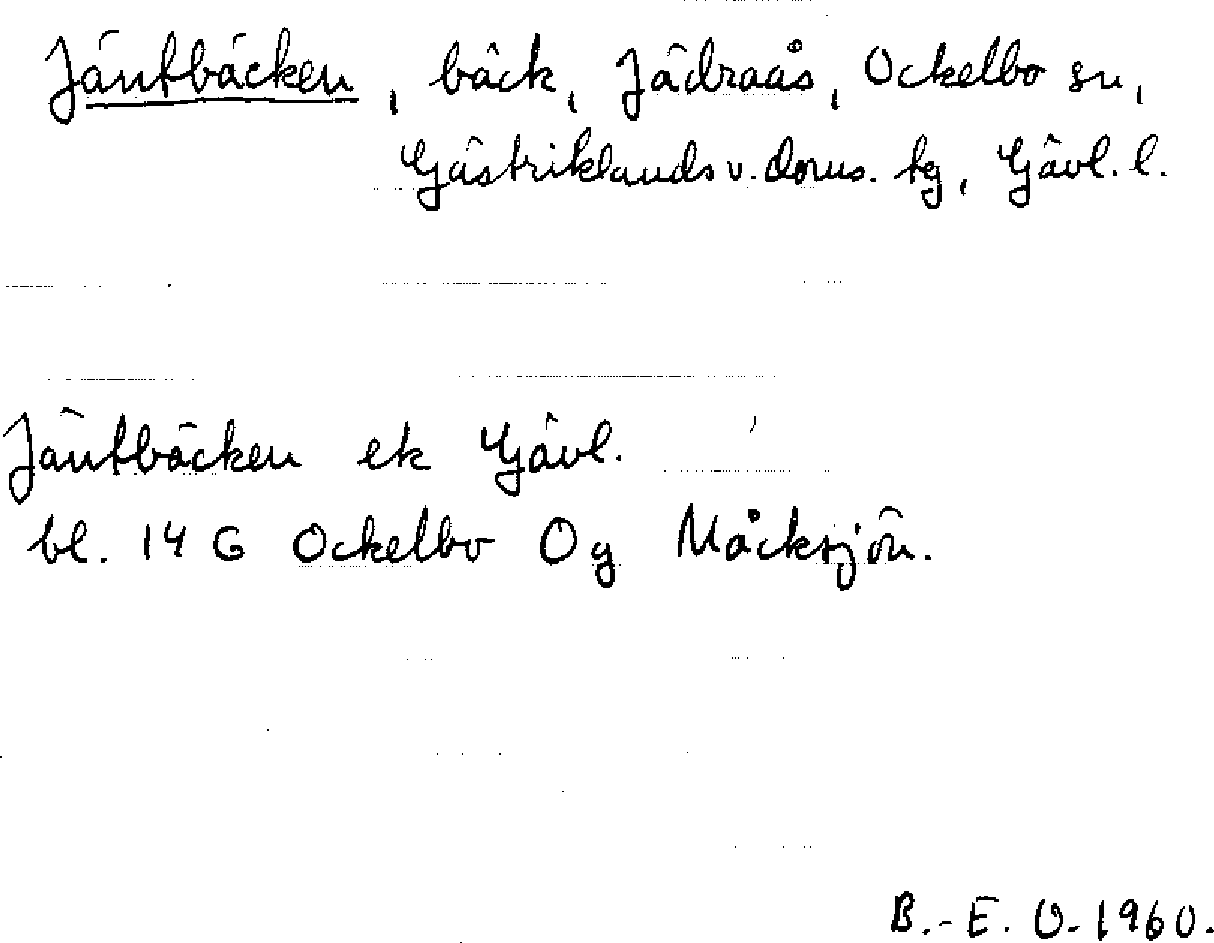 Jäntbäcken, bäck, Jädraås, Ockelbo sn,
Gästriklands v. doms. tg, Gävl. l.
Jäntbäcken ek Gävl.
bl. 14 G Ockelbo Og Måcksjön.
B.-E. O. 1960.